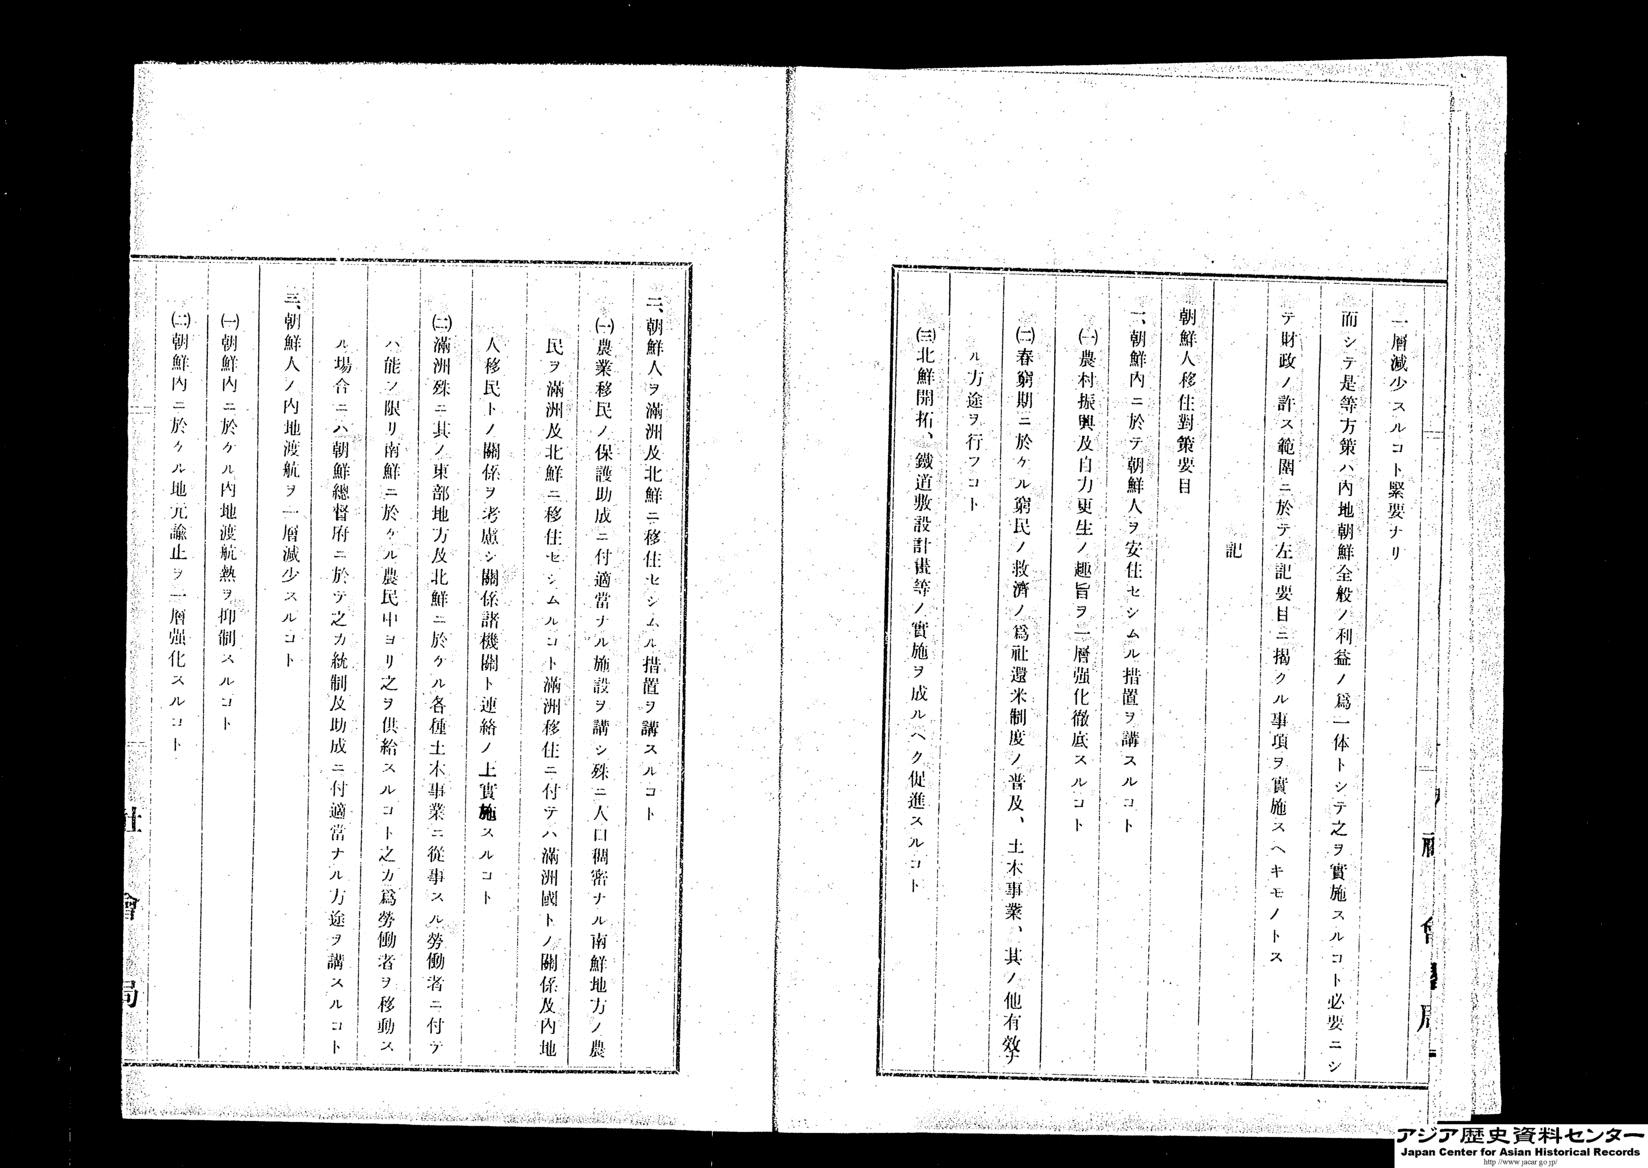 一層減少スルコト緊要ナリ
而シテ是等方策ハ內地朝鮮全般ノ利益ノ爲一体トシテ之ヲ實施スルコト必要ニシ
テ財政ノ許ス範圍ニ於テ左記要目ニ揭クル事項ヲ實施スヘキモノトス
記
朝鮮人移住對策要目
一、朝鮮內ニ於テ朝鮮人ヲ安住セシムル措置ヲ講スルコト
㈠農村振興及自力更生ノ趣旨ヲ一層强化徹底スルコト
㈡春窮期ニ於ケル窮民ノ救濟ノ爲社還米制度ノ普及、土木事業、其ノ他有效ナ
ル方途ヲ行フコト
㈢北鮮開拓、鐵道敷設計畫等ノ實施ヲ成ルヘク促進スルコト
二、朝鮮人ヲ滿洲及北鮮ニ移住セシムル措置ヲ講スルコト
㈠農業移民ノ保護助成ニ付適當ナル施設ヲ講シ殊ニ人口稠密ナル南鮮地方ノ農
民ヲ滿洲及北鮮ニ移住セシムルコト滿洲移住ニ付テハ滿洲國トノ關係及內地
人移民トノ關係ヲ考慮シ關係諸機關ト連絡ノ上實施スルコト
㈡滿洲殊ニ其ノ東部地方及北鮮ニ於ケル各種土木事業ニ從事スル勞働者ニ付テ
ハ能フ限リ南鮮ニ於ケル農民中ヨリ之ヲ供給スルコト之カ爲勞働者ヲ移動ス
ル場合ニハ朝鮮總督府ニ於テ之カ統制及助成ニ付適當ナル方途ヲ講スルコト
三、朝鮮人ノ內地渡航ヲ一層減少スルコト
㈠朝鮮內ニ於ケル內地渡航熱ヲ抑制スルコト
㈡朝鮮內ニ於ケル地元諭止ヲ一層强化スルコト
社會局
アジア歴史資料センター
Japan Center for Asian Historical Records
http://www.jacar.go.jp/